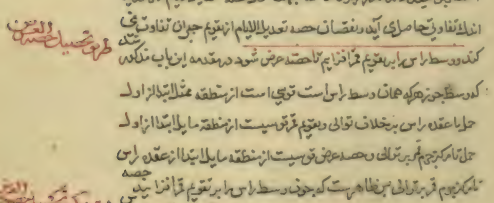 اندك تفاوتی حاصل می آید و نقصان حصه تعدیل الایام از تقویم جبران تفاوت نمی
طریق تحصیل حصه العرض
کند و وسط راس را بر تقویم قمر افزایم تا حصه عرض شود در مقدمه این باب مذکور شد
که وسط جوزهر که همان وسط راس است قوسی است از منطقه ممثل ابتدا از اول
حمل تا عقده راس بر خلاف توالی و تقویم قمر قوسیست از منطقه مایل ابتدا از اول
حمل تا مرکز جرم قمر بر توالی و حصه عرض قوسیست از منطقه مایل ابتدا از عقده راس
تا مرکز جرم قمر بر توالی پس ظاهر است که چون وسط راس را بر تقویم قمر افزاید حصه